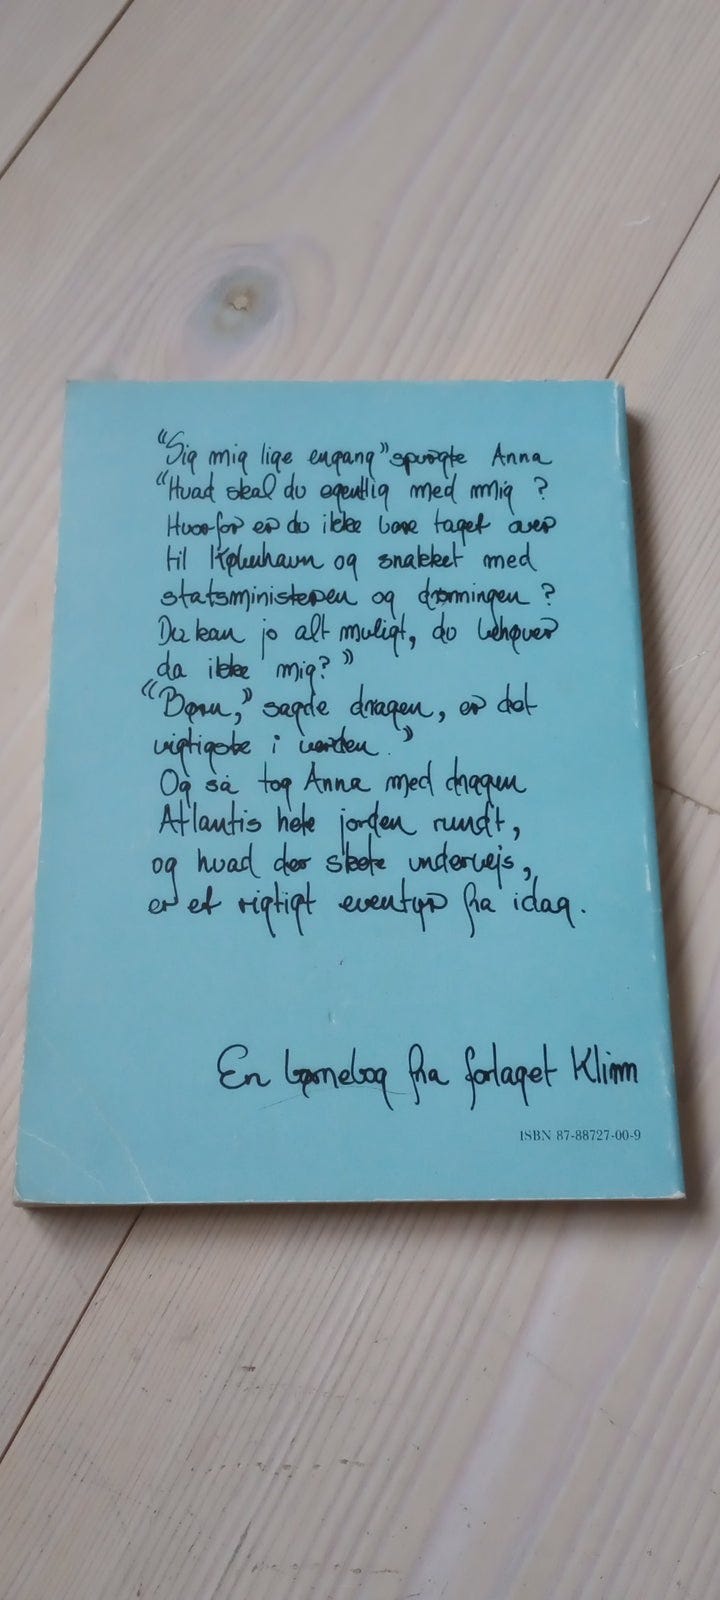 "Sig mig lige engang" spurgte Anna
"Hvad skal du egentlig med mig?
Hvorfor er du ikke bare taget over
til København og snakket med
statsministeren og dronningen?
Du kan jo alt muligt, du behøver
da ikke mig?"
"Børn," sagde dragen, er det
vigtigste i verden."
Og så tog Anna med dragen
Atlantis hele jorden rundt,
og hvad der skete undervejs,
er et rigtigt eventyr fra idag.
En børnebog fra forlaget Klim
ISBN 87-88727-00-9